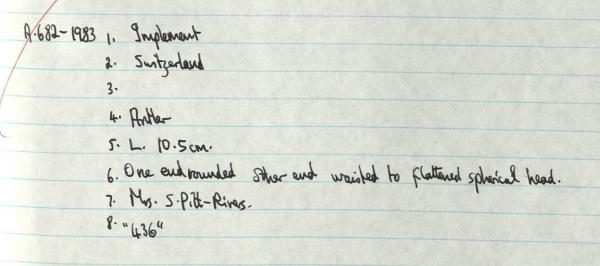 A.682-1983 1. Implement
2. Switzerland
3.
4. Antler
5. L. 10.5cm.
6. One end rounded other end waisted to flattened spherical head.
7. Mrs. S. Pitt-Rivers.
8. "436"